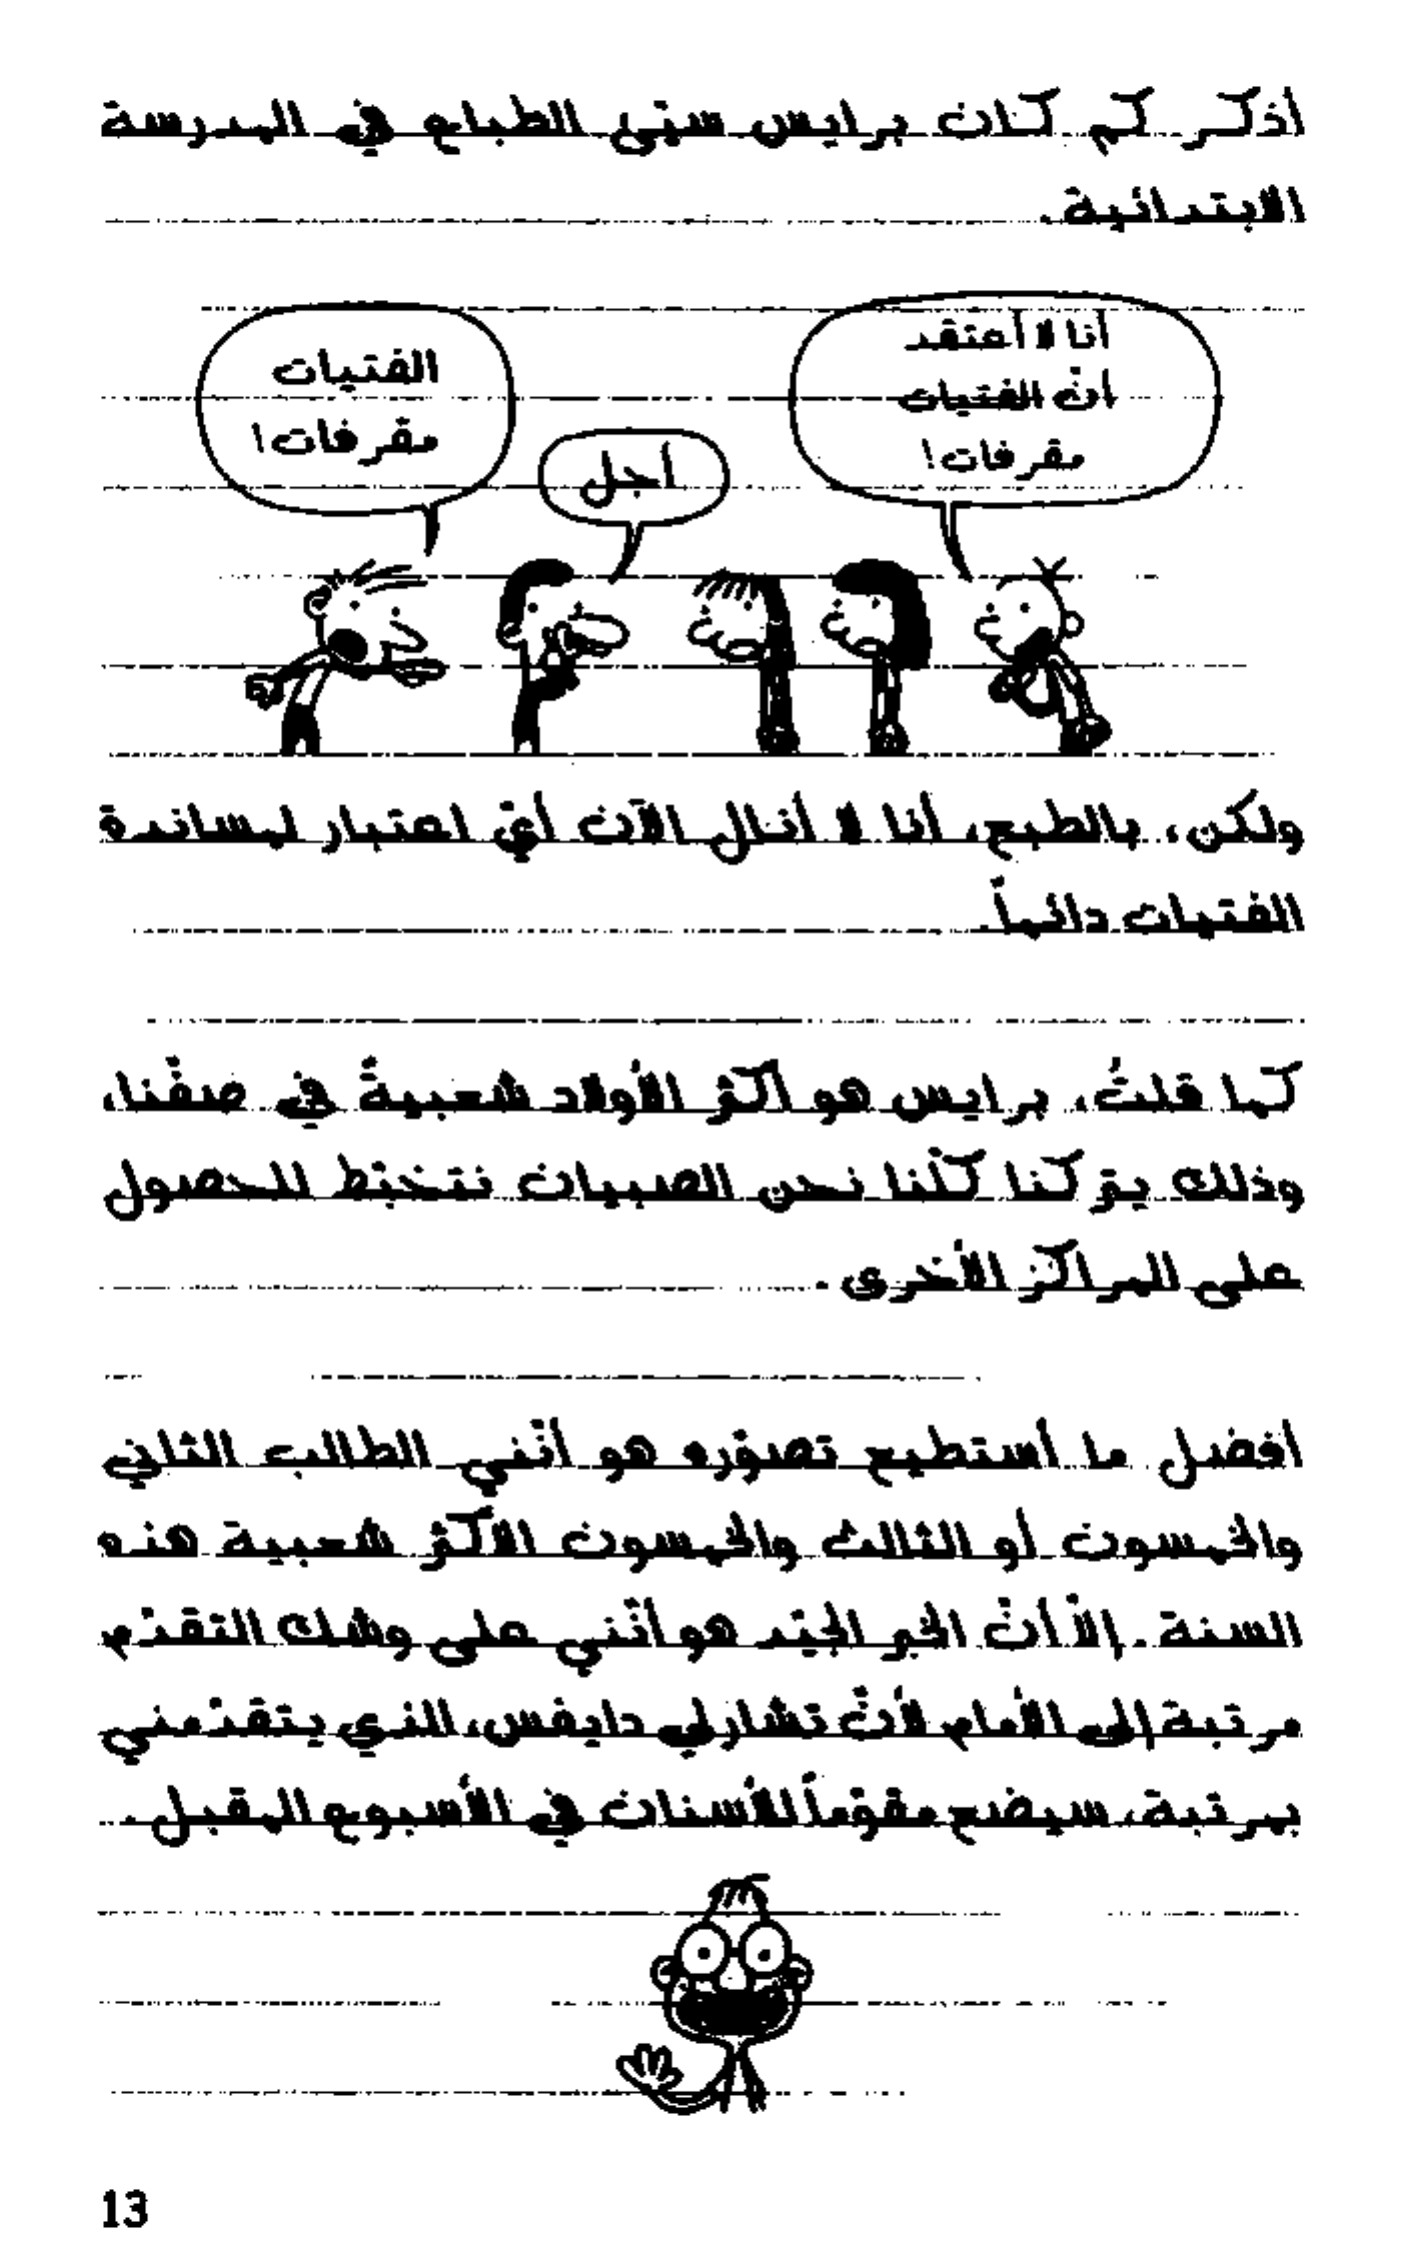 أذكر كم كان برايس سيّى الطباع في المدرسة
الابتدائية.
أنا لا أعتقد
أنّ الفتيات
مقرفات!
أجل
الفتيات
مقرفات!
ولكن، بالطبع، أنا لا أنال الآن أيّ اعتبار لمساندة
الفتيات دائماً.
كما قلتُ، برايس هو أكثر الأولاد شعبيةً في صفّنا،
وذلك يتركنا كلّنا نحن الصبيان نتخبّط للحصول
على المراكز الأخرى.
أفضل ما أستطيع تصوّره هو أنّني الطالب الثاني
والخمسون أو الثالث والخمسون الأكثر شعبية هذه
السنة. إلاّ أنّ الخبر الجيّد هو أنّني على وشك التقدّم
مرتبة إلى الأمام لأنّ تشارلي دايفس، الذي يتقدّمني
بمرتبة، سيضع مقوّماً للأسنان في الأسبوع المقبل.
13